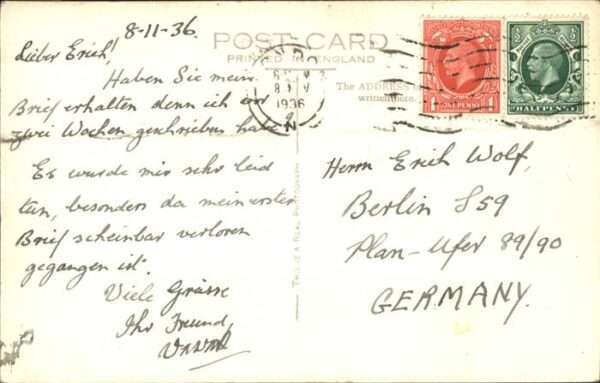 8-11-36.
POST CARD
PRINTED IN ENGLAND
The ADDRESS
1936
N
ONE PENNY
HALF PENNY
Lieber Erich!
Haben Sie mein
Brief erhalten denn ich vor
zwei Wochen geschrieben habe?
Es wurde mir sehr leid
tun, besonders da mein erster
Brief scheinbar verloren
gegangen ist.
Viele Grüsse
Ihr Freund,
THIS IS A REAL PHOTOGRAPH
Herrn Erich Wolf,
Berlin S59
Plan-Ufer 89/90
GERMANY.